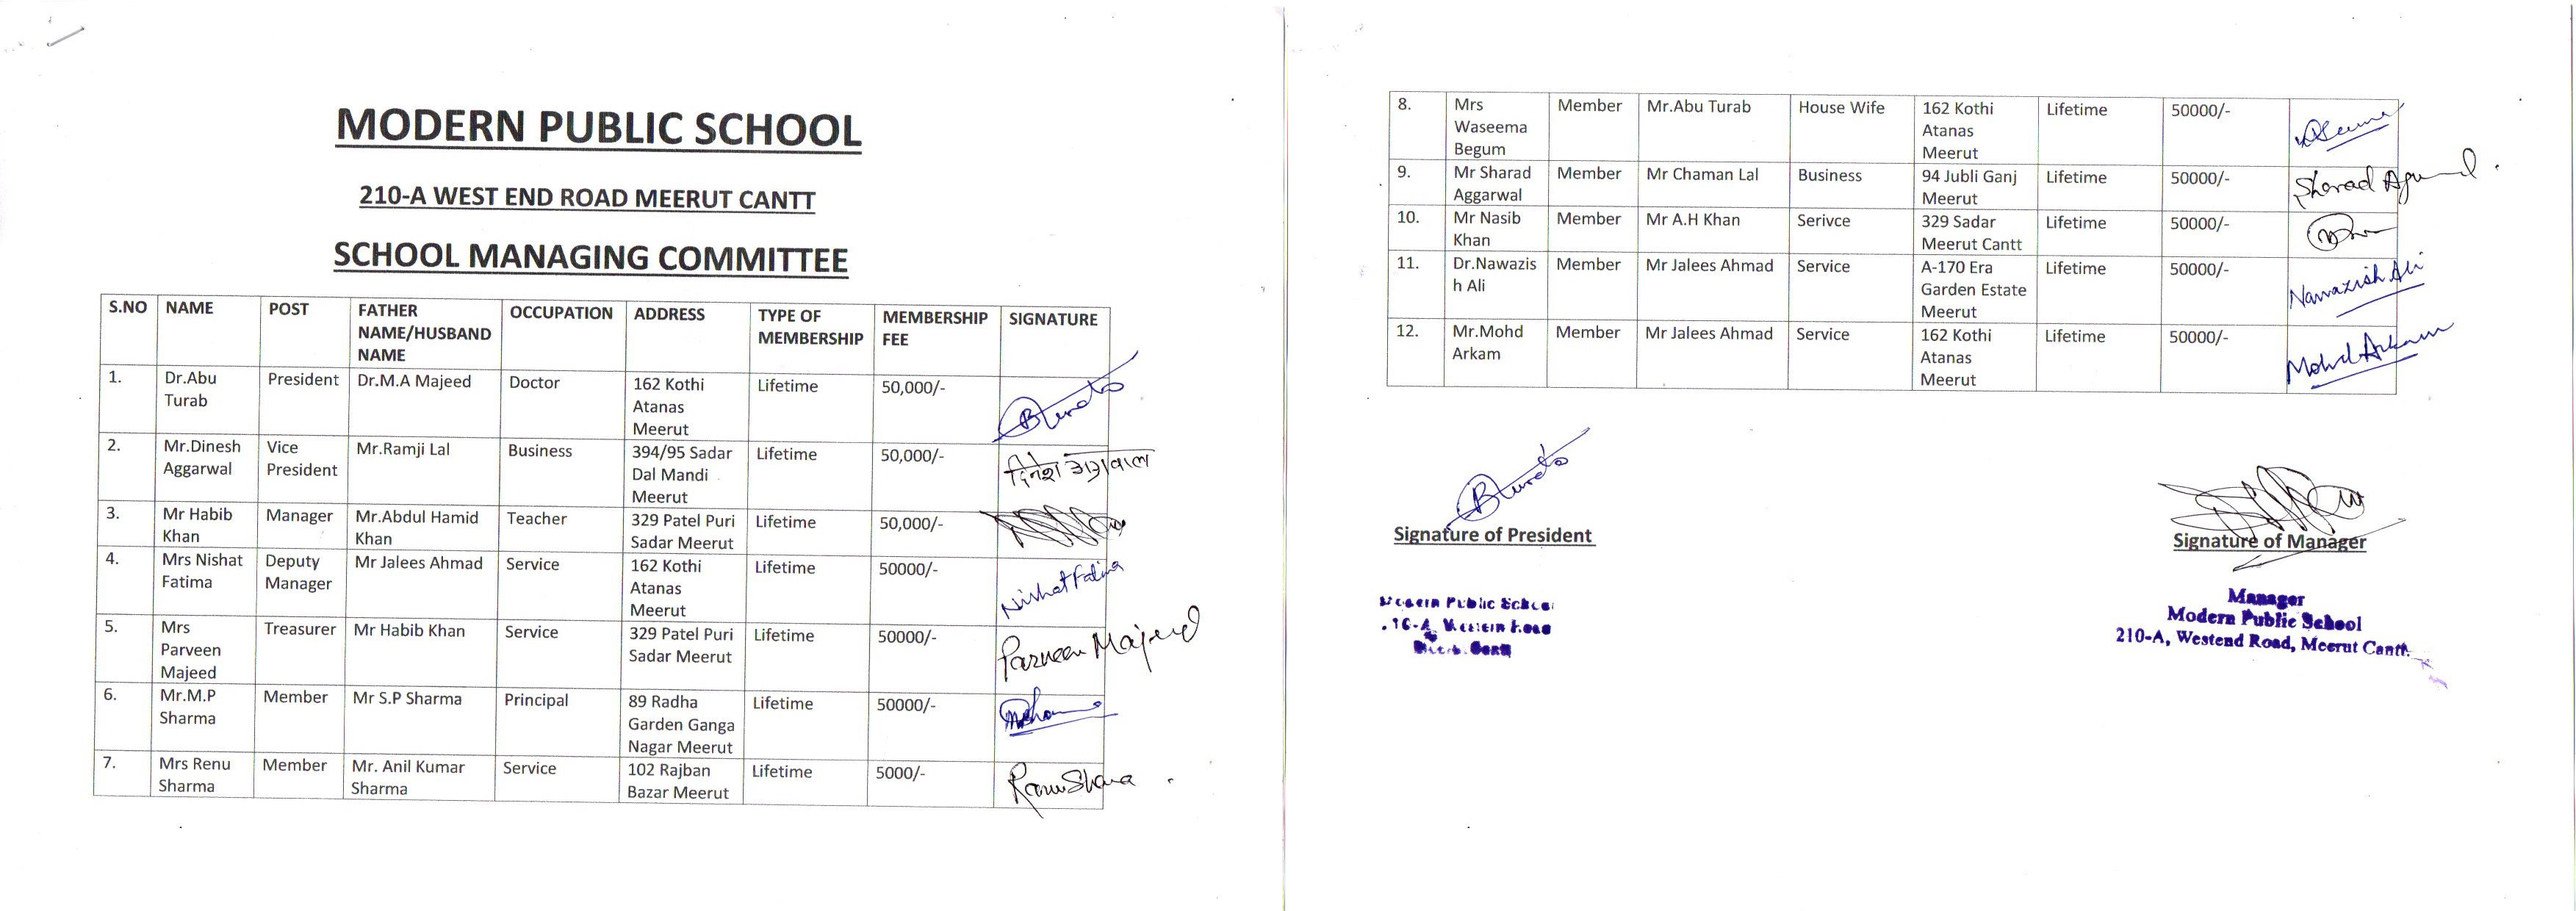 MODERN PUBLIC SCHOOL
210-A WEST END ROAD MEERUT CANTT
SCHOOL MANAGING COMMITTEE
S.NO NAME POST FATHER NAME/HUSBAND NAME OCCUPATION ADDRESS TYPE OF MEMBERSHIP MEMBERSHIP FEE SIGNATURE
1. Dr.Abu Turab President Dr.M.A Majeed Doctor 162 Kothi Atanas Meerut Lifetime 50,000/-
2. Mr.Dinesh Aggarwal Vice President Mr.Ramji Lal Business 394/95 Sadar Dal Mandi Meerut Lifetime 50,000/- दिनेश अग्रवाल
3. Mr Habib Khan Manager Mr.Abdul Hamid Khan Teacher 329 Patel Puri Sadar Meerut Lifetime 50,000/-
4. Mrs Nishat Fatima Deputy Manager Mr Jalees Ahmad Service 162 Kothi Atanas Meerut Lifetime 50000/- Nishat Fatima
5. Mrs Parveen Majeed Treasurer Mr Habib Khan Service 329 Patel Puri Sadar Meerut Lifetime 50000/- Parveen Majeed
6. Mr.M.P Sharma Member Mr S.P Sharma Principal 89 Radha Garden Ganga Nagar Meerut Lifetime 50000/-
7. Mrs Renu Sharma Member Mr. Anil Kumar Sharma Service 102 Rajban Bazar Meerut Lifetime 5000/-
8. Mrs Waseema Begum Member Mr.Abu Turab House Wife 162 Kothi Atanas Meerut Lifetime 50000/-
9. Mr Sharad Aggarwal Member Mr Chaman Lal Business 94 Jubli Ganj Meerut Lifetime 50000/- Sharad
10. Mr Nasib Khan Member Mr A.H Khan Serivce 329 Sadar Meerut Cantt Lifetime 50000/-
11. Dr.Nawazis h Ali Member Mr Jalees Ahmad Service A-170 Era Garden Estate Meerut Lifetime 50000/- Nawazish Ali
12. Mr.Mohd Arkam Member Mr Jalees Ahmad Service 162 Kothi Atanas Meerut Lifetime 50000/- Mohd Arkam
Signature of President
Signature of Manager
Public School
Manager
Modern Public School
210-A, Westend Road, Meerut Cantt.